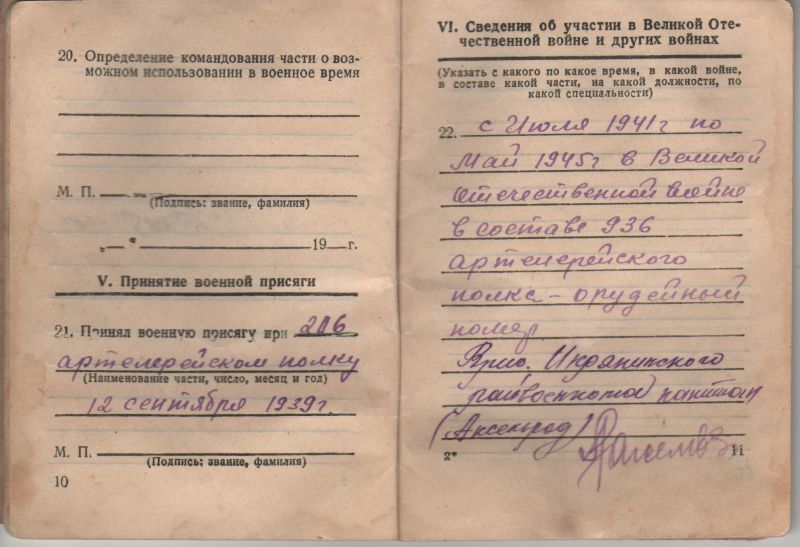 20. Определение командования части о воз-
можном использовании в военное время
М. П.
(Подпись: звание, фамилия)
„—" 19 — г.
V. Принятие военной присяги
21. Принял военную присягу при 206
артелерейском полку
(Наименование части, число, месяц и год)
12 сентября 1939г.
М. П.
(Подпись: звание, фамилия)
10
VI. Сведения об участии в Великой Оте-
чественной войне и других войнах
(Указать с какого по какое время, в какой войне,
в составе какой части, на какой должности, по
какой специальности)
22. с Июля 1941г по
Май 1945г в Великой
Отечественной войне
в составе 936
артелерейского
полка – орудейный
номер
Врио.
райвоенкома капитан
(Аксельрод)
2*
11